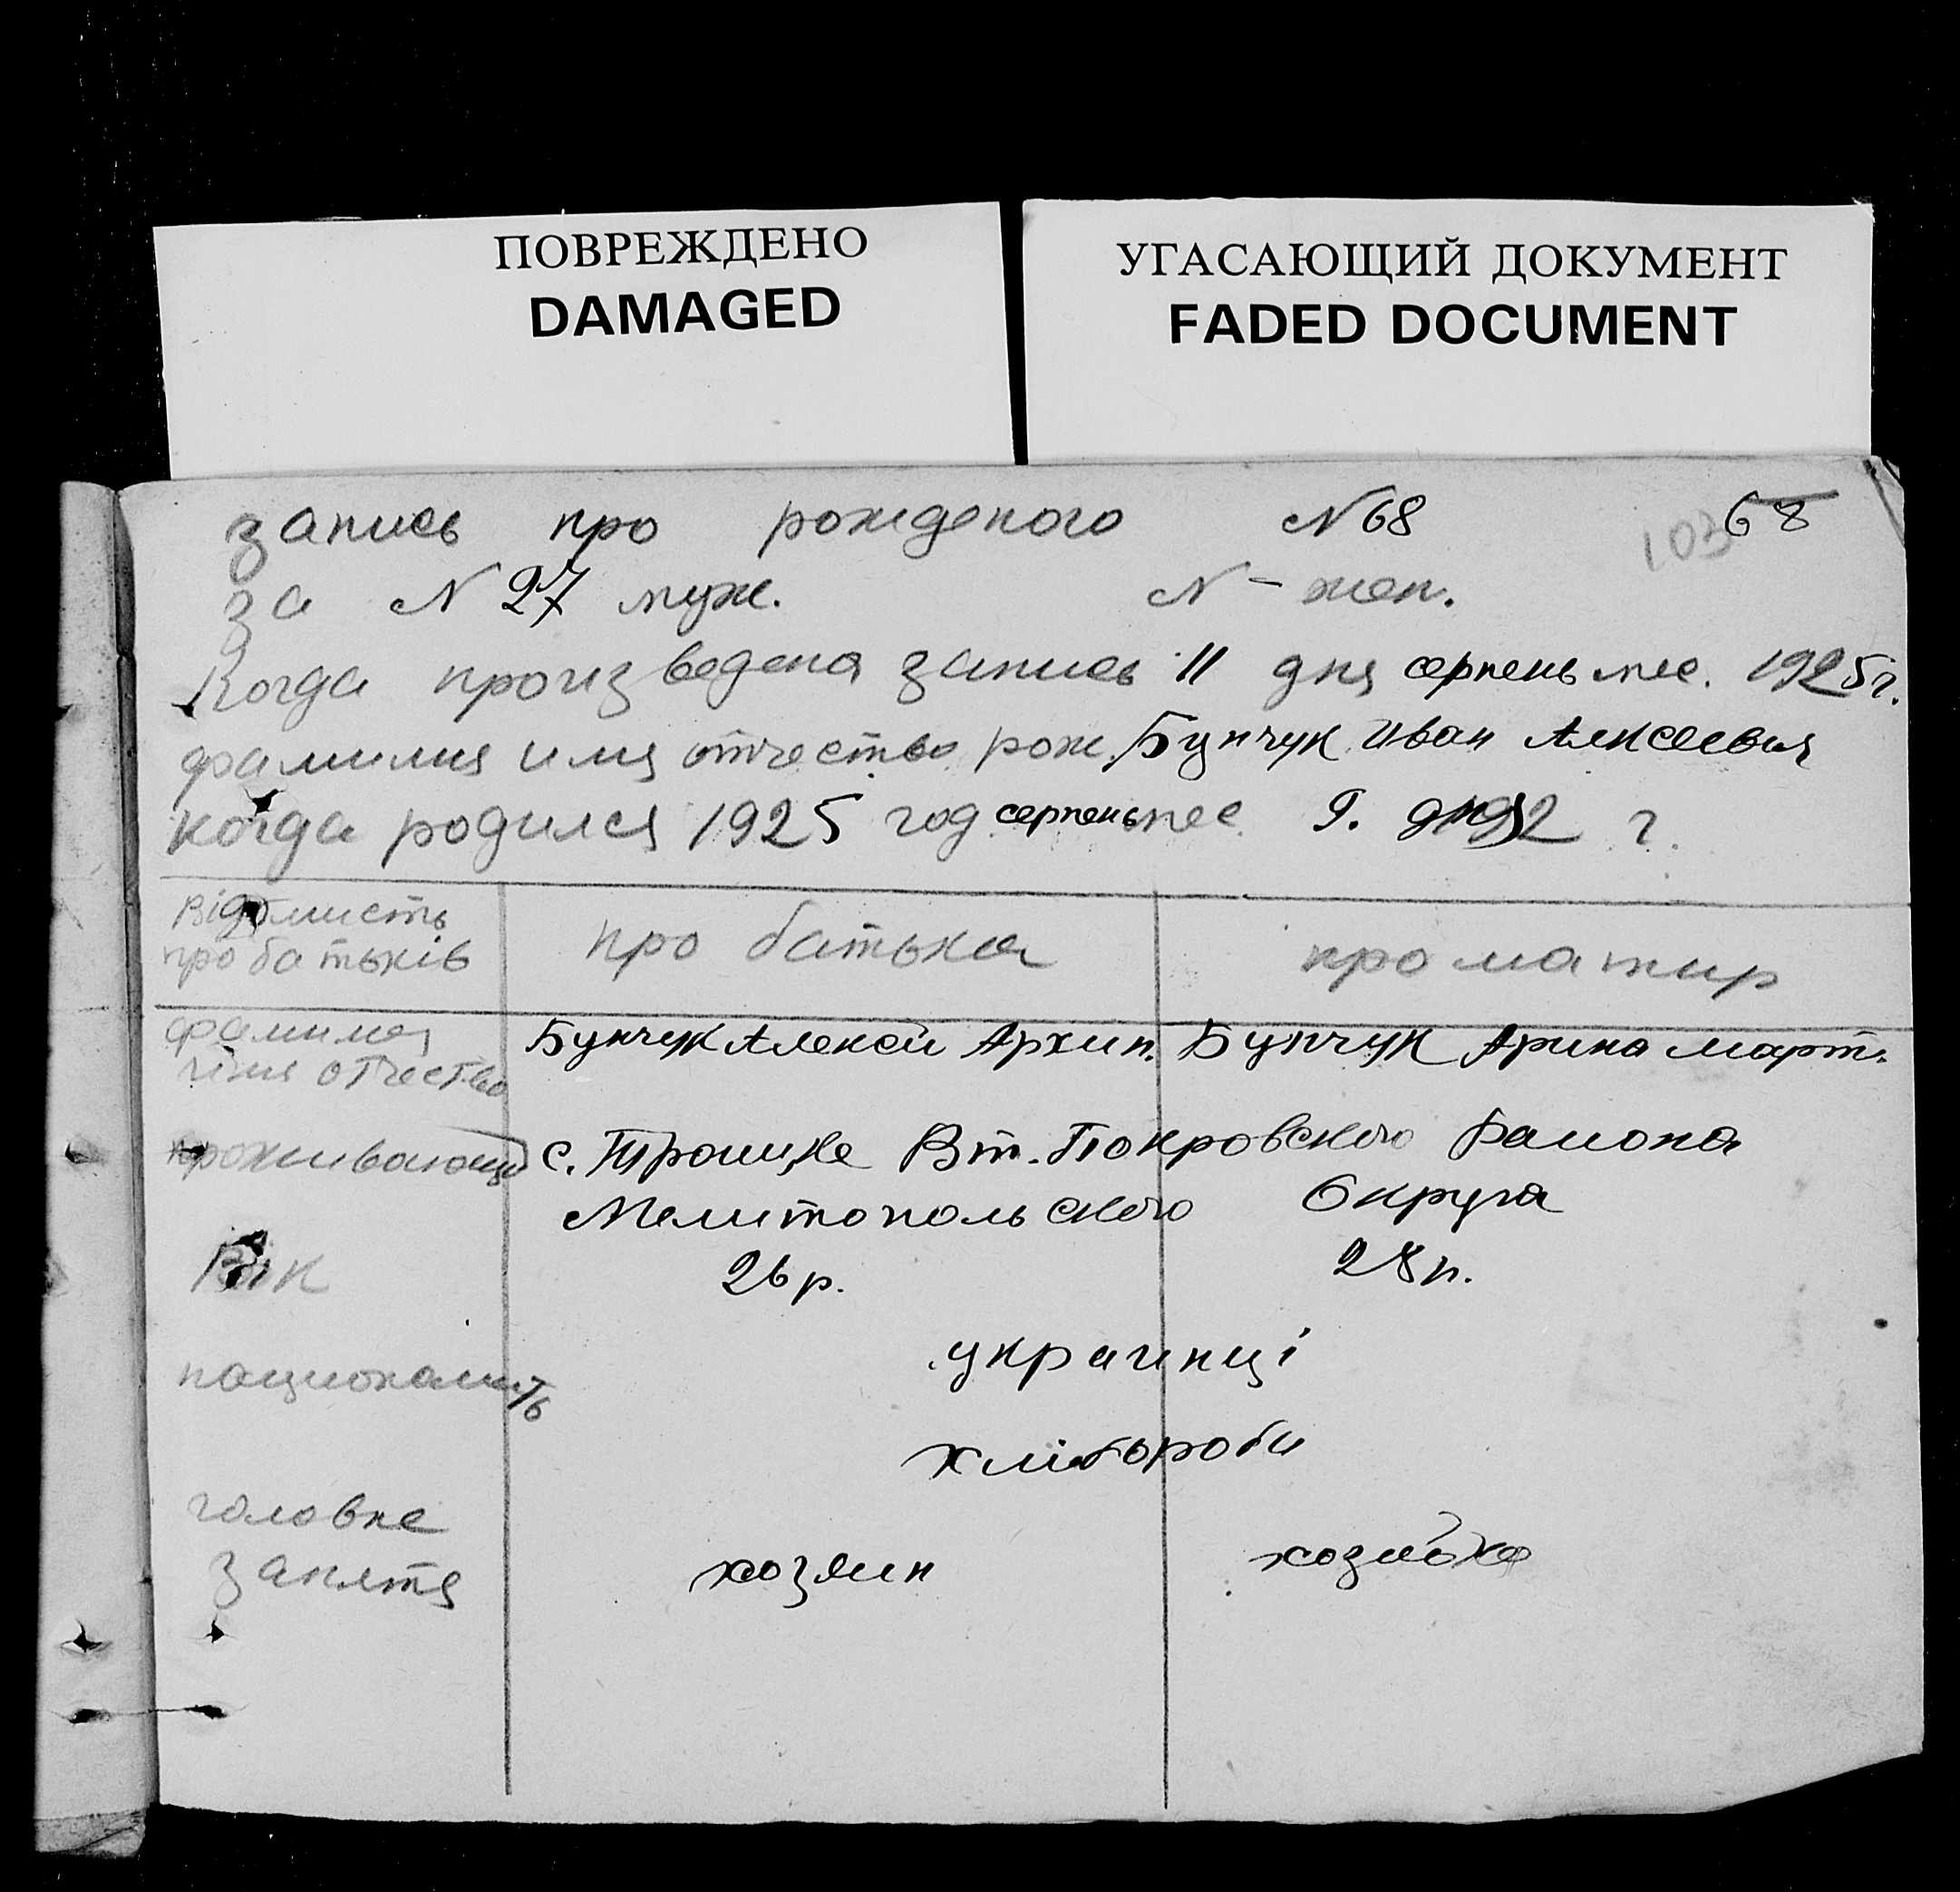 ПОВРЕЖДЕНО
DAMAGED
УГАСАЮЩИЙ ДОКУМЕНТ
FADED DOCUMENT
запись про рожденого N 68 68
103
за N 27 муж. N – жен.
Когда произведена запись 11 дня серпень мес. 1925 г.
фамилия имя отчество рож. Бунчук Иван Алексеевич
когда родился 1925 год серпень мес 9. дня 192 г.
Відомисть про батька про матир
про батьків
фамилия Бунчук Алексей Архип. Бунчук Арина Март.
имя отчество
проживающи с. Троицке Вт. Покровского Района
Мелитопольского Округа
Вік 26 р. 28 р.
украинці
националить
хлібороби
головне
занятя хозяин хозяйка